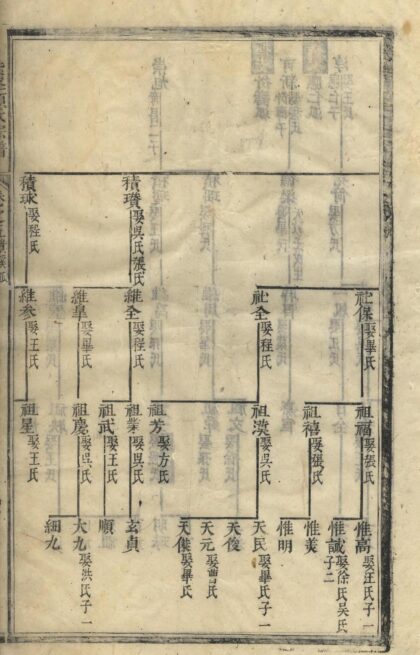 積瓚娶吳氏張氏
積球娶程氏
社保娶畢氏
社全娶程氏
維全娶程氏
維皐娶畢氏
維參娶王氏
祖福娶張氏
祖禧娶張氏
祖漢娶吳氏
祖芳娶方氏
祖業娶吳氏
祖武娶王氏
祖慶娶吳氏
祖星娶王氏
惟高娶汪氏子一
惟誠娶徐氏吳氏子二
惟美
惟明
天民娶畢氏子一
天俊
天元娶曹氏
天傑娶畢氏
玄貞
順
大九娶洪氏子一
細九